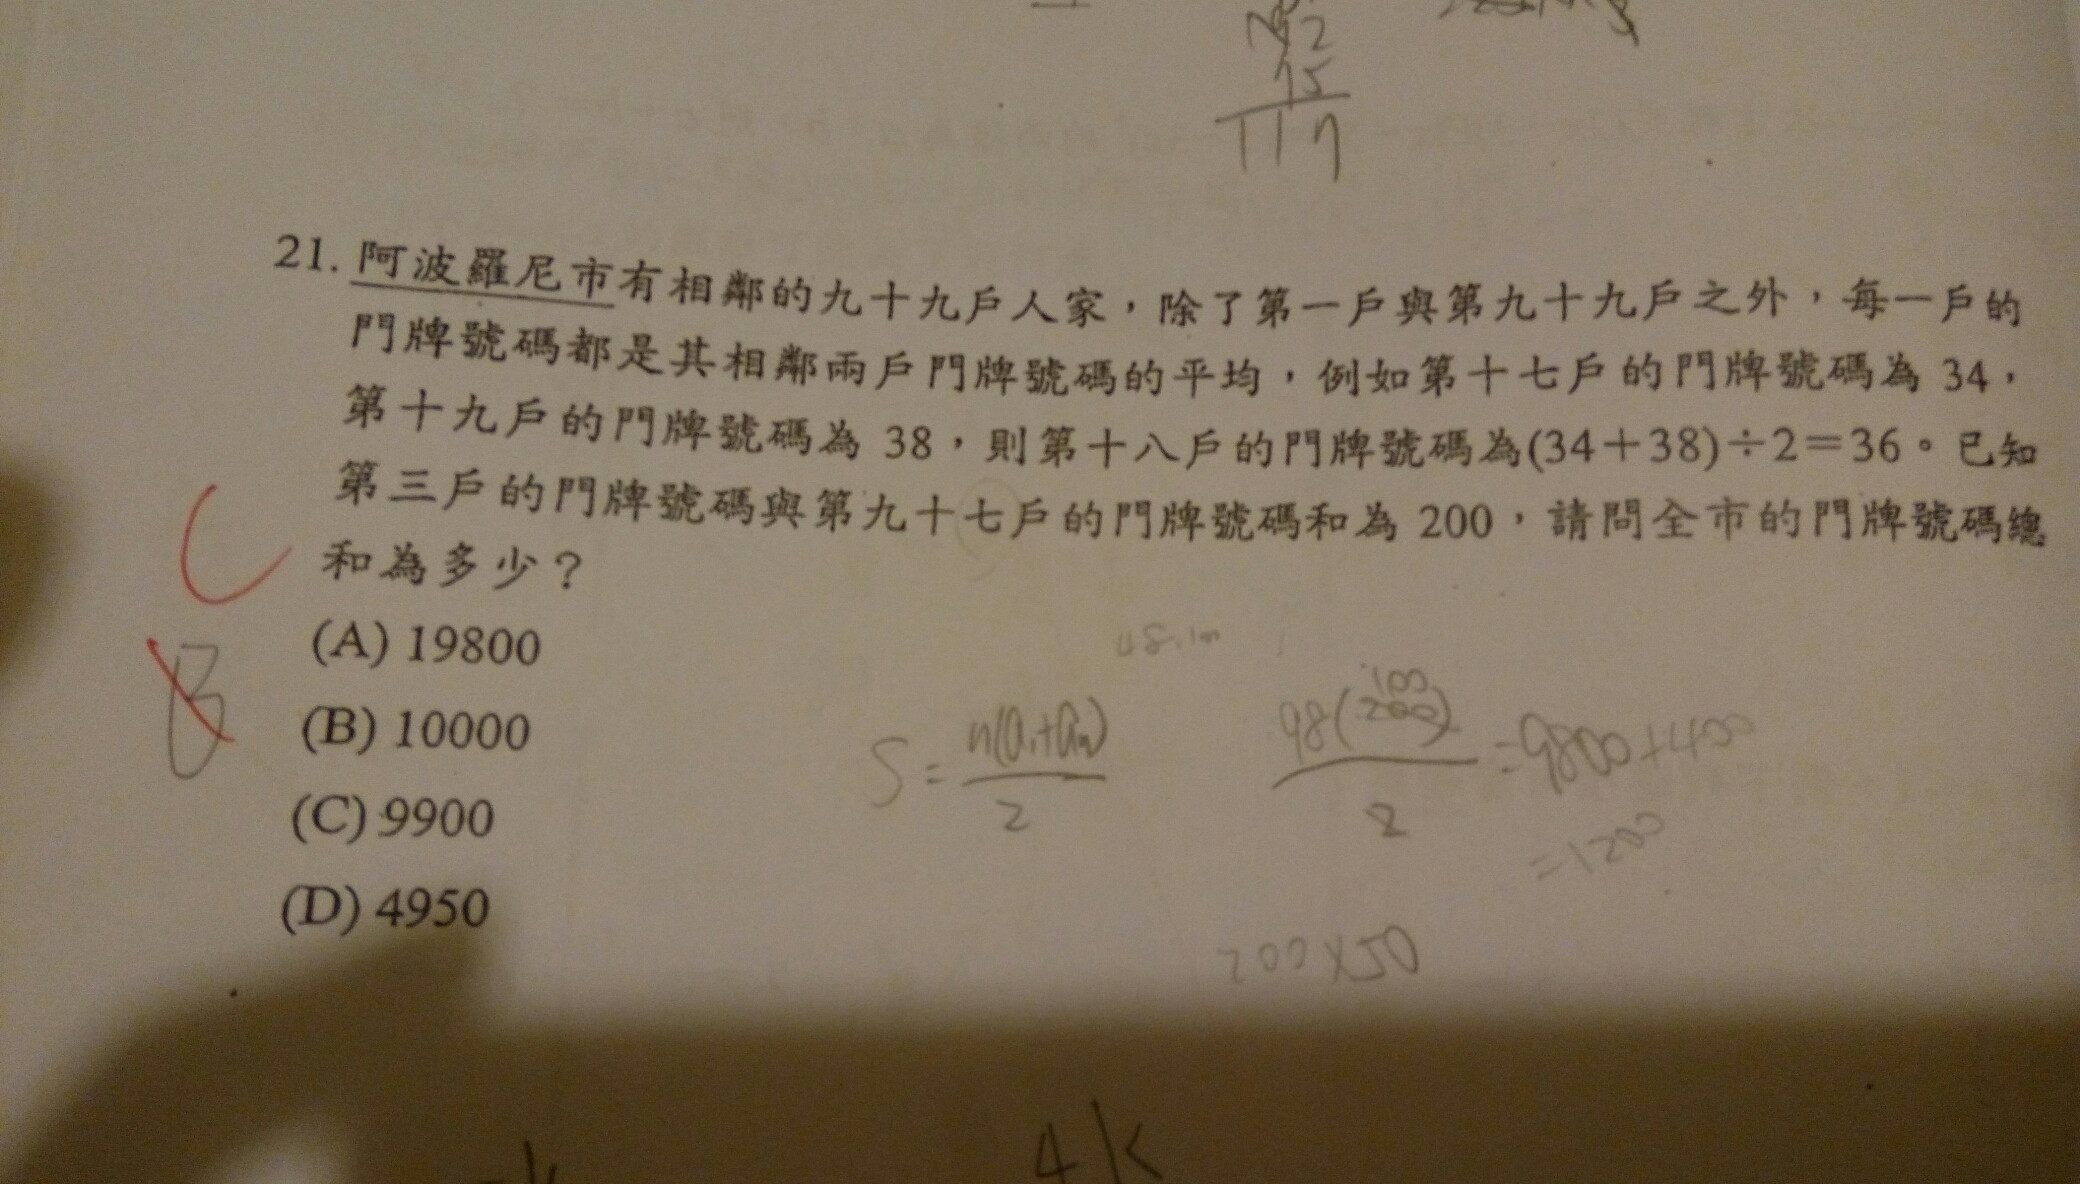 117
21. 阿波羅尼市有相鄰的九十九戶人家，除了第一戶與第九十九戶之外，每一戶的
門牌號碼都是其相鄰兩戶門牌號碼的平均，例如第十七戶的門牌號碼為 34，
第十九戶的門牌號碼為 38，則第十八戶的門牌號碼為(34＋38)÷2＝36。已知
第三戶的門牌號碼與第九十七戶的門牌號碼和為 200，請問全市的門牌號碼總
和為多少？
C
(A) 19800
B
(B) 10000
(C) 9900
(D) 4950
S = n(a₁+aₙ)/2
=9800+400
=1200
200×50
4k